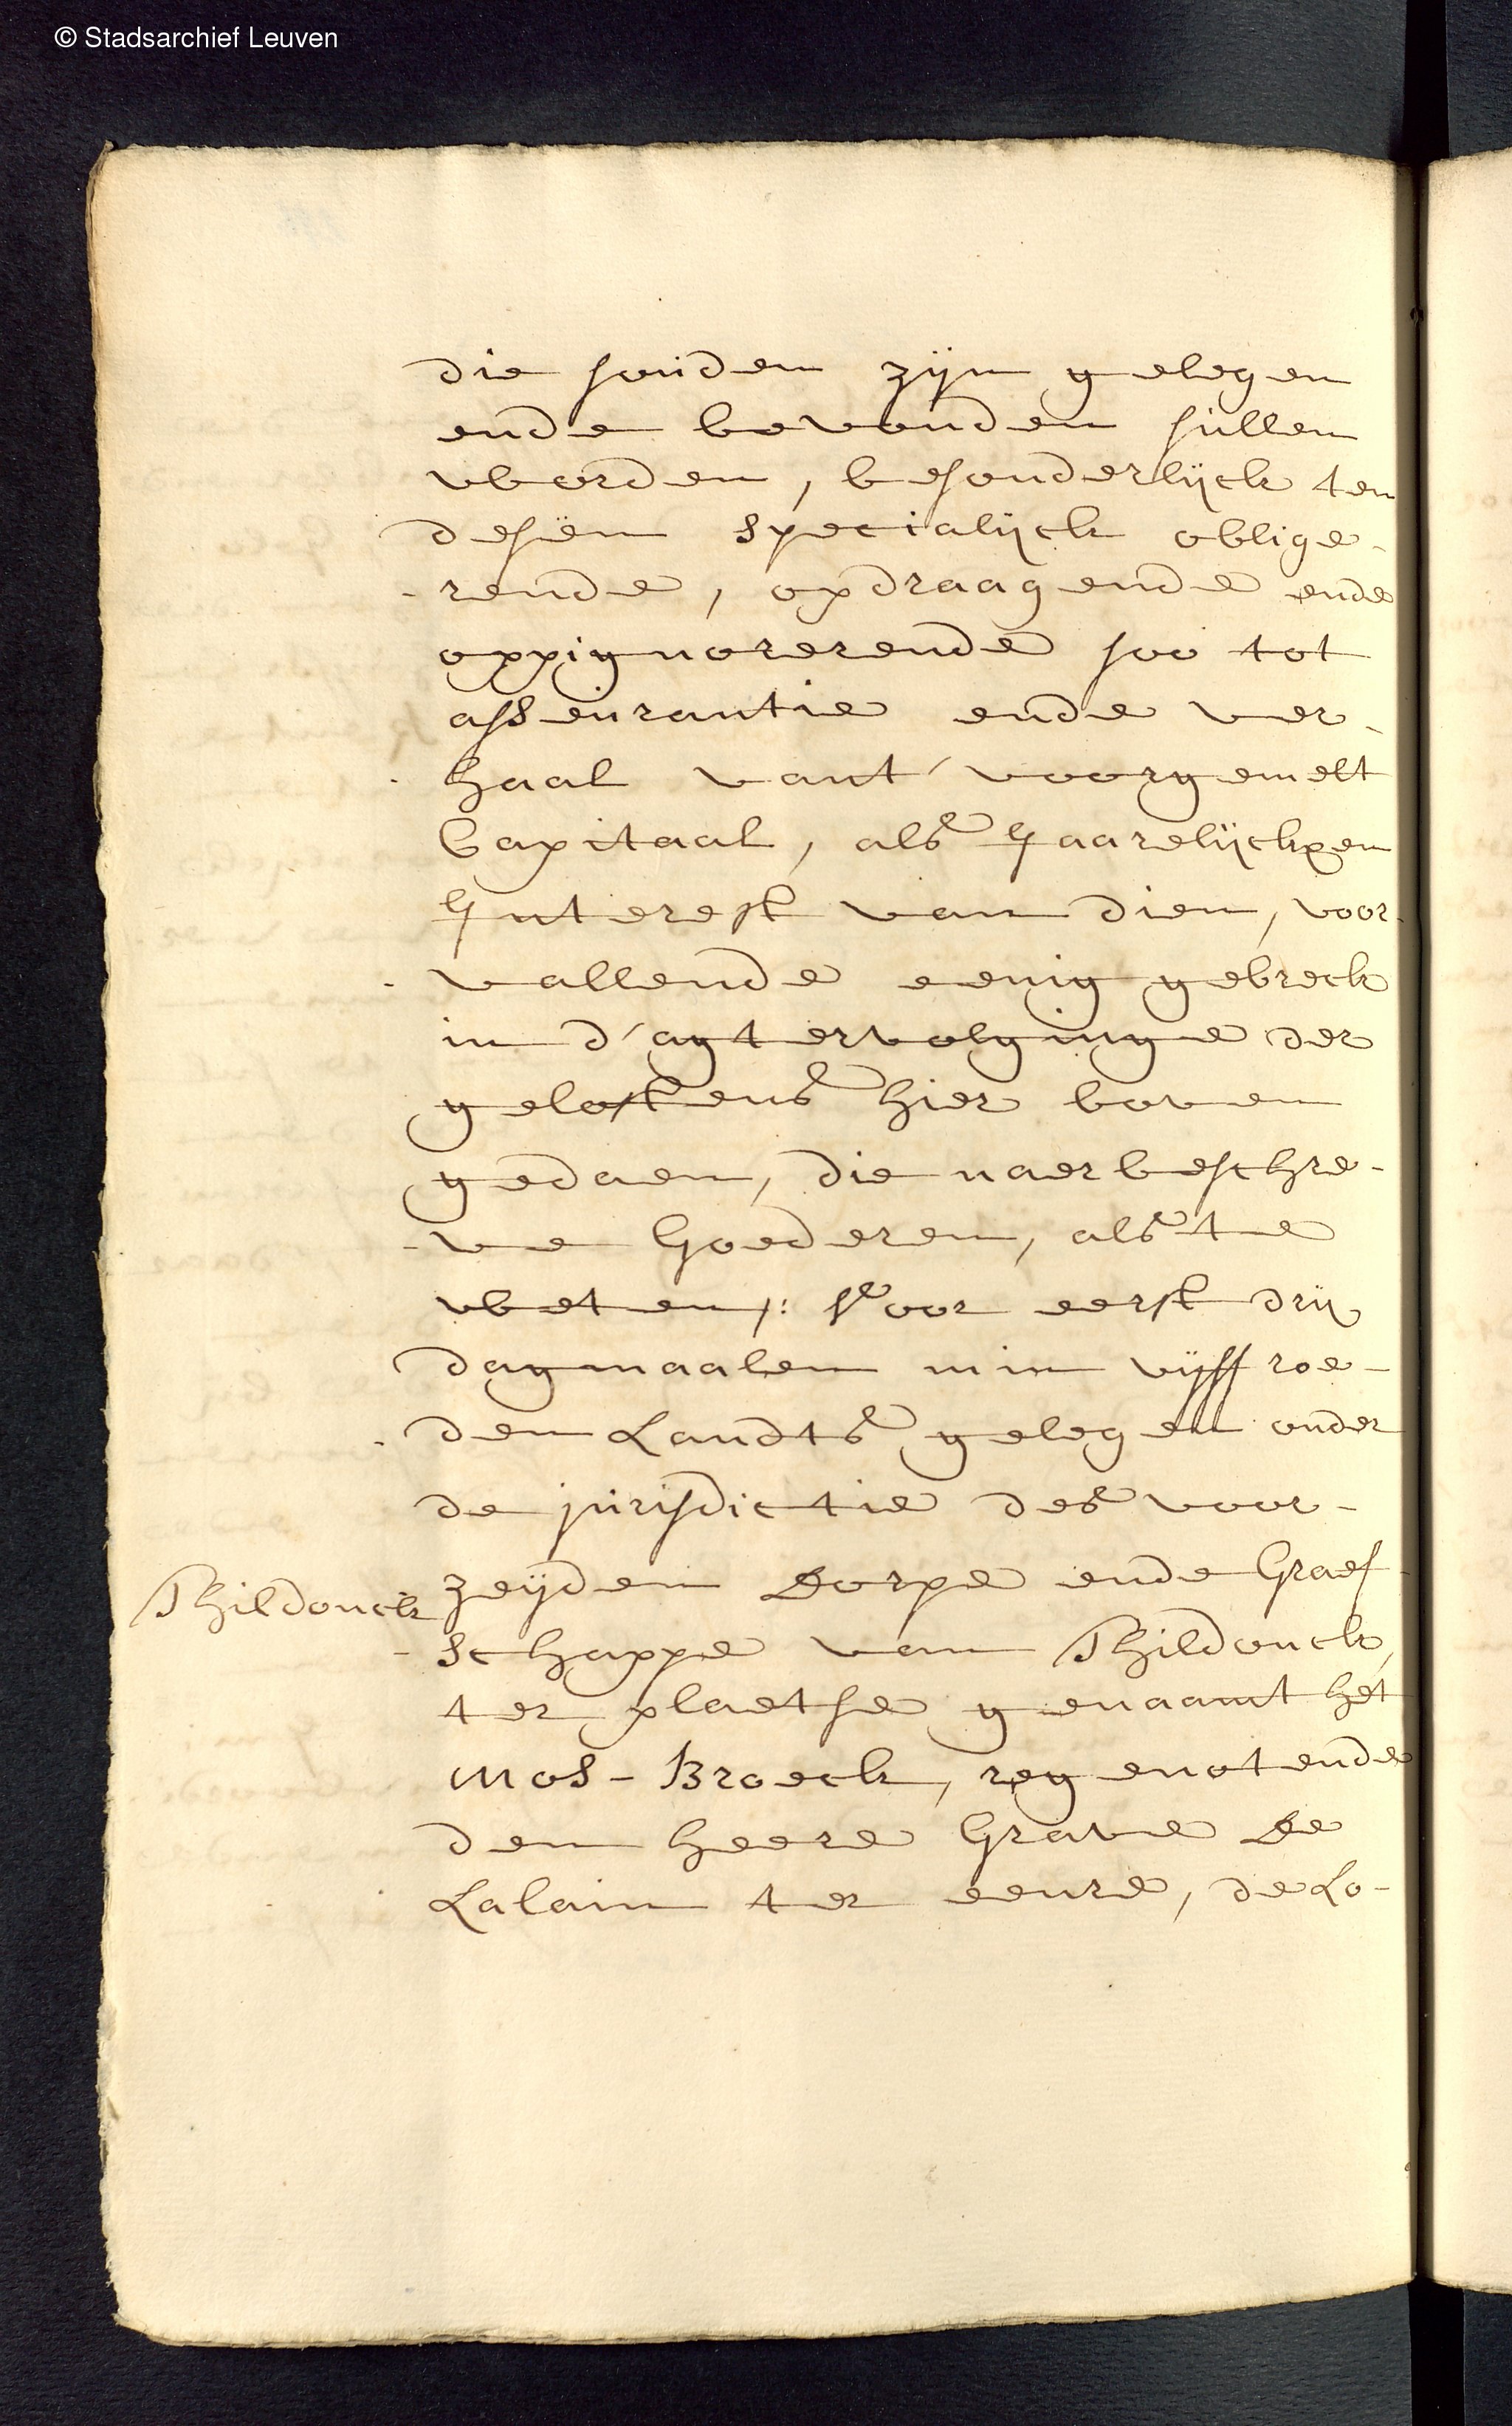 © Stadsarchief Leuven
die souden zijn gelegen
ende bevonden sullen
worden, besonderlijck ten
desen specialijck oblige-
-rende, opdraagende ende
oppignorerende soo tot
asseurantie ende ver-
-haal vant' voorgemelt
Capitaal, als Jaarelijckxen
Interest van dien, voor-
-vallende eenig gebreck
in d'agtervolginge der
geloftens hier boven
gedaen, die naerbeschre-
-ve Goederen, als te
weten: Voor eerst drij
dagmaalen min vijff roe-
-den Landts gelegen onder
de jurisdictie des voor-
zeijden Dorpe ende Graef-
Thildonck
-schappe van Thildonck,
ter plaetse genaamt het
Mos-Broeck, regenotende
den heere Grave De
Lalain ter eenre, de Lo-